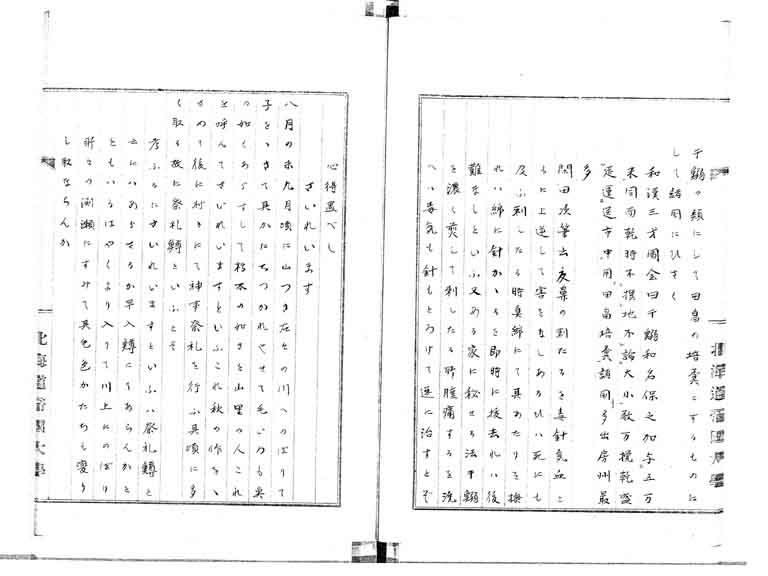 干鰯の類にして田畠の培糞にするものに
して諸国にひさく
和漢三才図会曰干鰯和名保之加与五万
来同而乾時不撰地不論大小数万攪乾盛
延運送市中用田畠培糞諸国多出房州最
多
閑田次筆出
もに上逆して害をなしあるひハ死にも
及ふ刺したる時真綿にて其あたりを撫
れハ綿に針かゝるを即時に抜去れハ後
難なしといふ又ある家に秘せる法干鰯
を濃く煎して刺したる時腫痛するを洗
へハ毒気も針もとろけて速に治すとそ
心得置べし
さいれいます
八月の末九月頃に山つき在々の川へのぼりて
子をうみて其かにちつかれやせて毛いろも臭
の如くあらすして朽木の如きを山里の人これ
を呼んてさいれいますといふこれ秋の作を
さめて後に村々にて神事祭礼を行ふ其頃に多
く取る故に祭礼鱒といふとそ
考ふるにさいれいますといふハ祭礼鱒と
云にハあらさるか早入鱒にてあらんかと
ともいふはやくより入りて川上にのぼり
所々の渕瀬にすみて其色色かたちも変り
し取ならんか
北海道